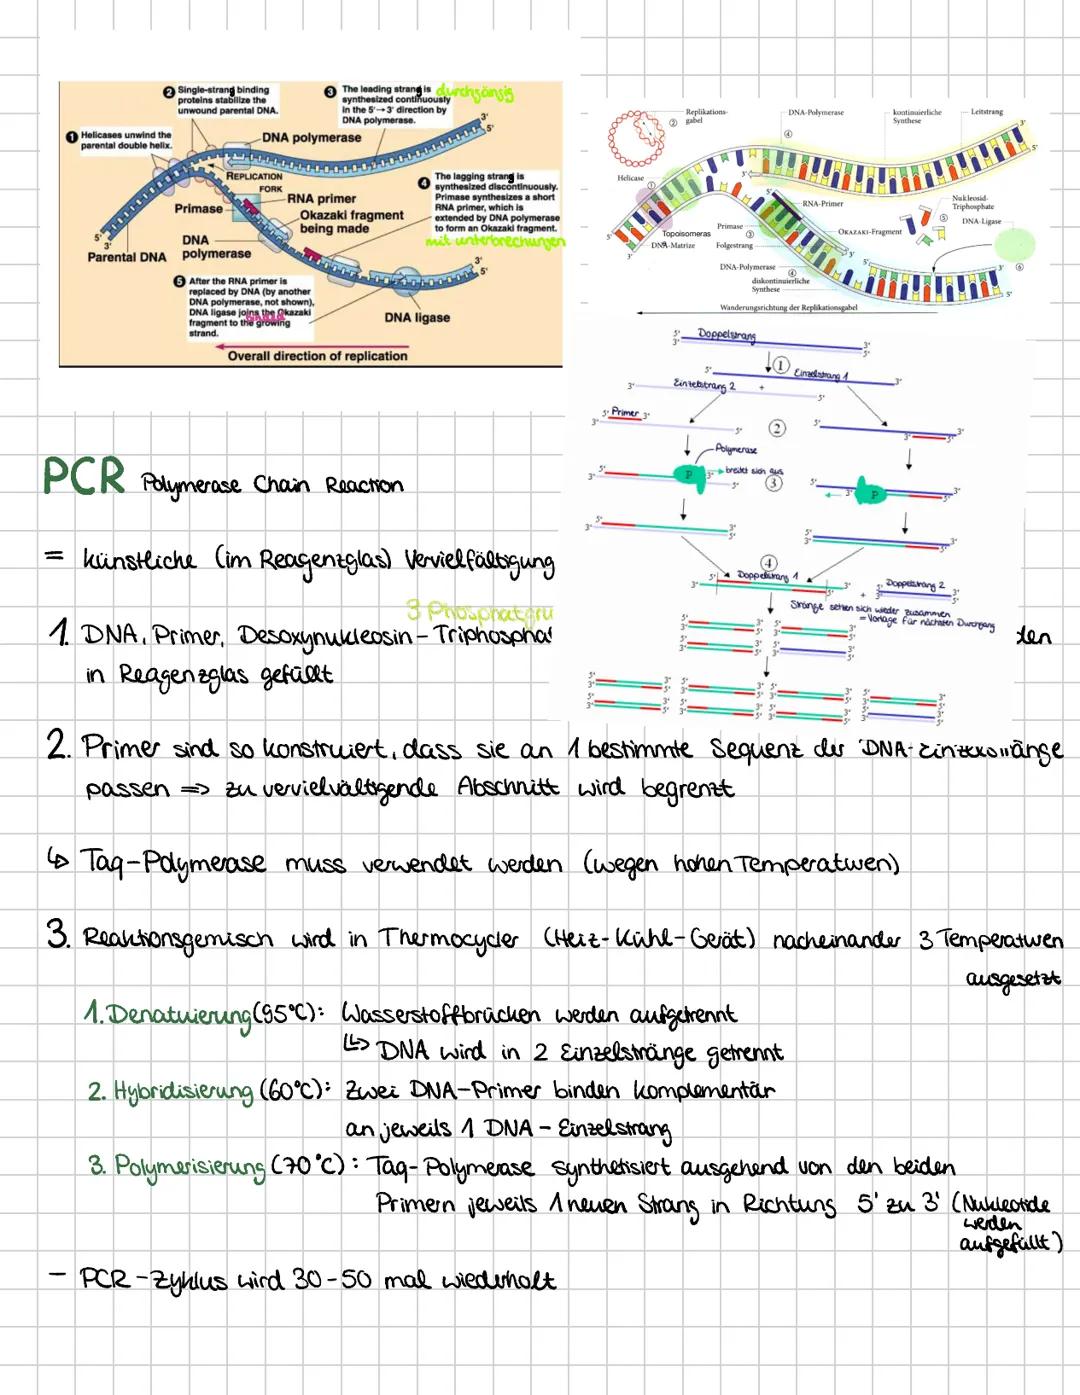 2 Single-strang binding
proteins stabilize the
unwound parental DNA.
3 The leading strang is durchgängig
synthesized continuously
in the 5'→3' direction by
DNA polymerase.
1 Helicases unwind the
parental double helix.
DNA polymerase
3'
5'
REPLICATION
FORK
4 The lagging strang is
synthesized discontinuously.
Primase synthesizes a short
RNA primer, which is
extended by DNA polymerase
to form an Okazaki fragment.
mit unterbrechungen
RNA primer
Primase
Okazaki fragment
being made
5'
3'
DNA
polymerase
Parental DNA
3'
5'
5 After the RNA primer is
replaced by DNA (by another
DNA polymerase, not shown),
DNA ligase joins the Okazaki
fragment to the growing
strand.
DNA ligase
Overall direction of replication
Replikations-
gabel
2
DNA-Polymerase
4
kontinuierliche
Synthese
Leitstrang
3'
5'
Helicase
1
3'
5'
RNA-Primer
Nukleosid-
Triphosphate
5
DNA-Ligase
Primase
3
OKAZAKI-Fragment
Topoisomeras
DNA-Matrize
Folgestrang
5'
3'
3'
5'
DNA-Polymerase
4
diskontinuierliche
Synthese
3'
6
5'
Wanderungsrichtung der Replikationsgabel
5' Doppelstrang 3'
3' 5'
1
5' Einzelstrang 1 3'
3' Einzelstrang 2 + 5'
5' Primer 3'
3' 5'
2
5' 3'
3' 5'
Polymerase
5' P 3' breitet sich aus
3' 5'
3
5' 3'
3' P 5'
5' 3'
3' 5'
5' 3'
3' 5'
4
5' Doppelstrang 1 3'
3' 5'
+
5' Doppelstrang 2 3'
3' 5'
Stränge setzen sich wieder zusammen
= Vorlage für nächsten Durchgang
PCR Polymerase Chain Reaction
= künstliche (im Reagenzglas) Vervielfältigung
3 Phosphatgru
1. DNA, Primer, Desoxynukleosin-Triphospha
den
in Reagenzglas gefüllt
2. Primer sind so konstruiert, dass sie an 1 bestimmte Sequenz der DNA-Einzelstränge
passen => zu vervielvältigende Abschnitt wird begrenzt
↳ Taq-Polymerase muss verwendet werden (wegen hohen Temperaturen)
3. Reaktionsgemisch wird in Thermocycler (Heiz-Kühl-Gerät) nacheinander 3 Temperaturen
ausgesetzt
1. Denaturierung (95°C): Wasserstoffbrücken werden aufgetrennt
↳ DNA wird in 2 Einzelstränge getrennt
2. Hybridisierung (60°C): Zwei DNA-Primer binden komplementär
an jeweils 1 DNA-Einzelstrang
3. Polymerisierung (70°C): Taq-Polymerase synthetisiert ausgehend von den beiden
Primern jeweils 1 neuen Strang in Richtung 5' zu 3' (Nukleotide
werden
aufgefüllt)
- PCR-Zyklus wird 30-50 mal wiederholt